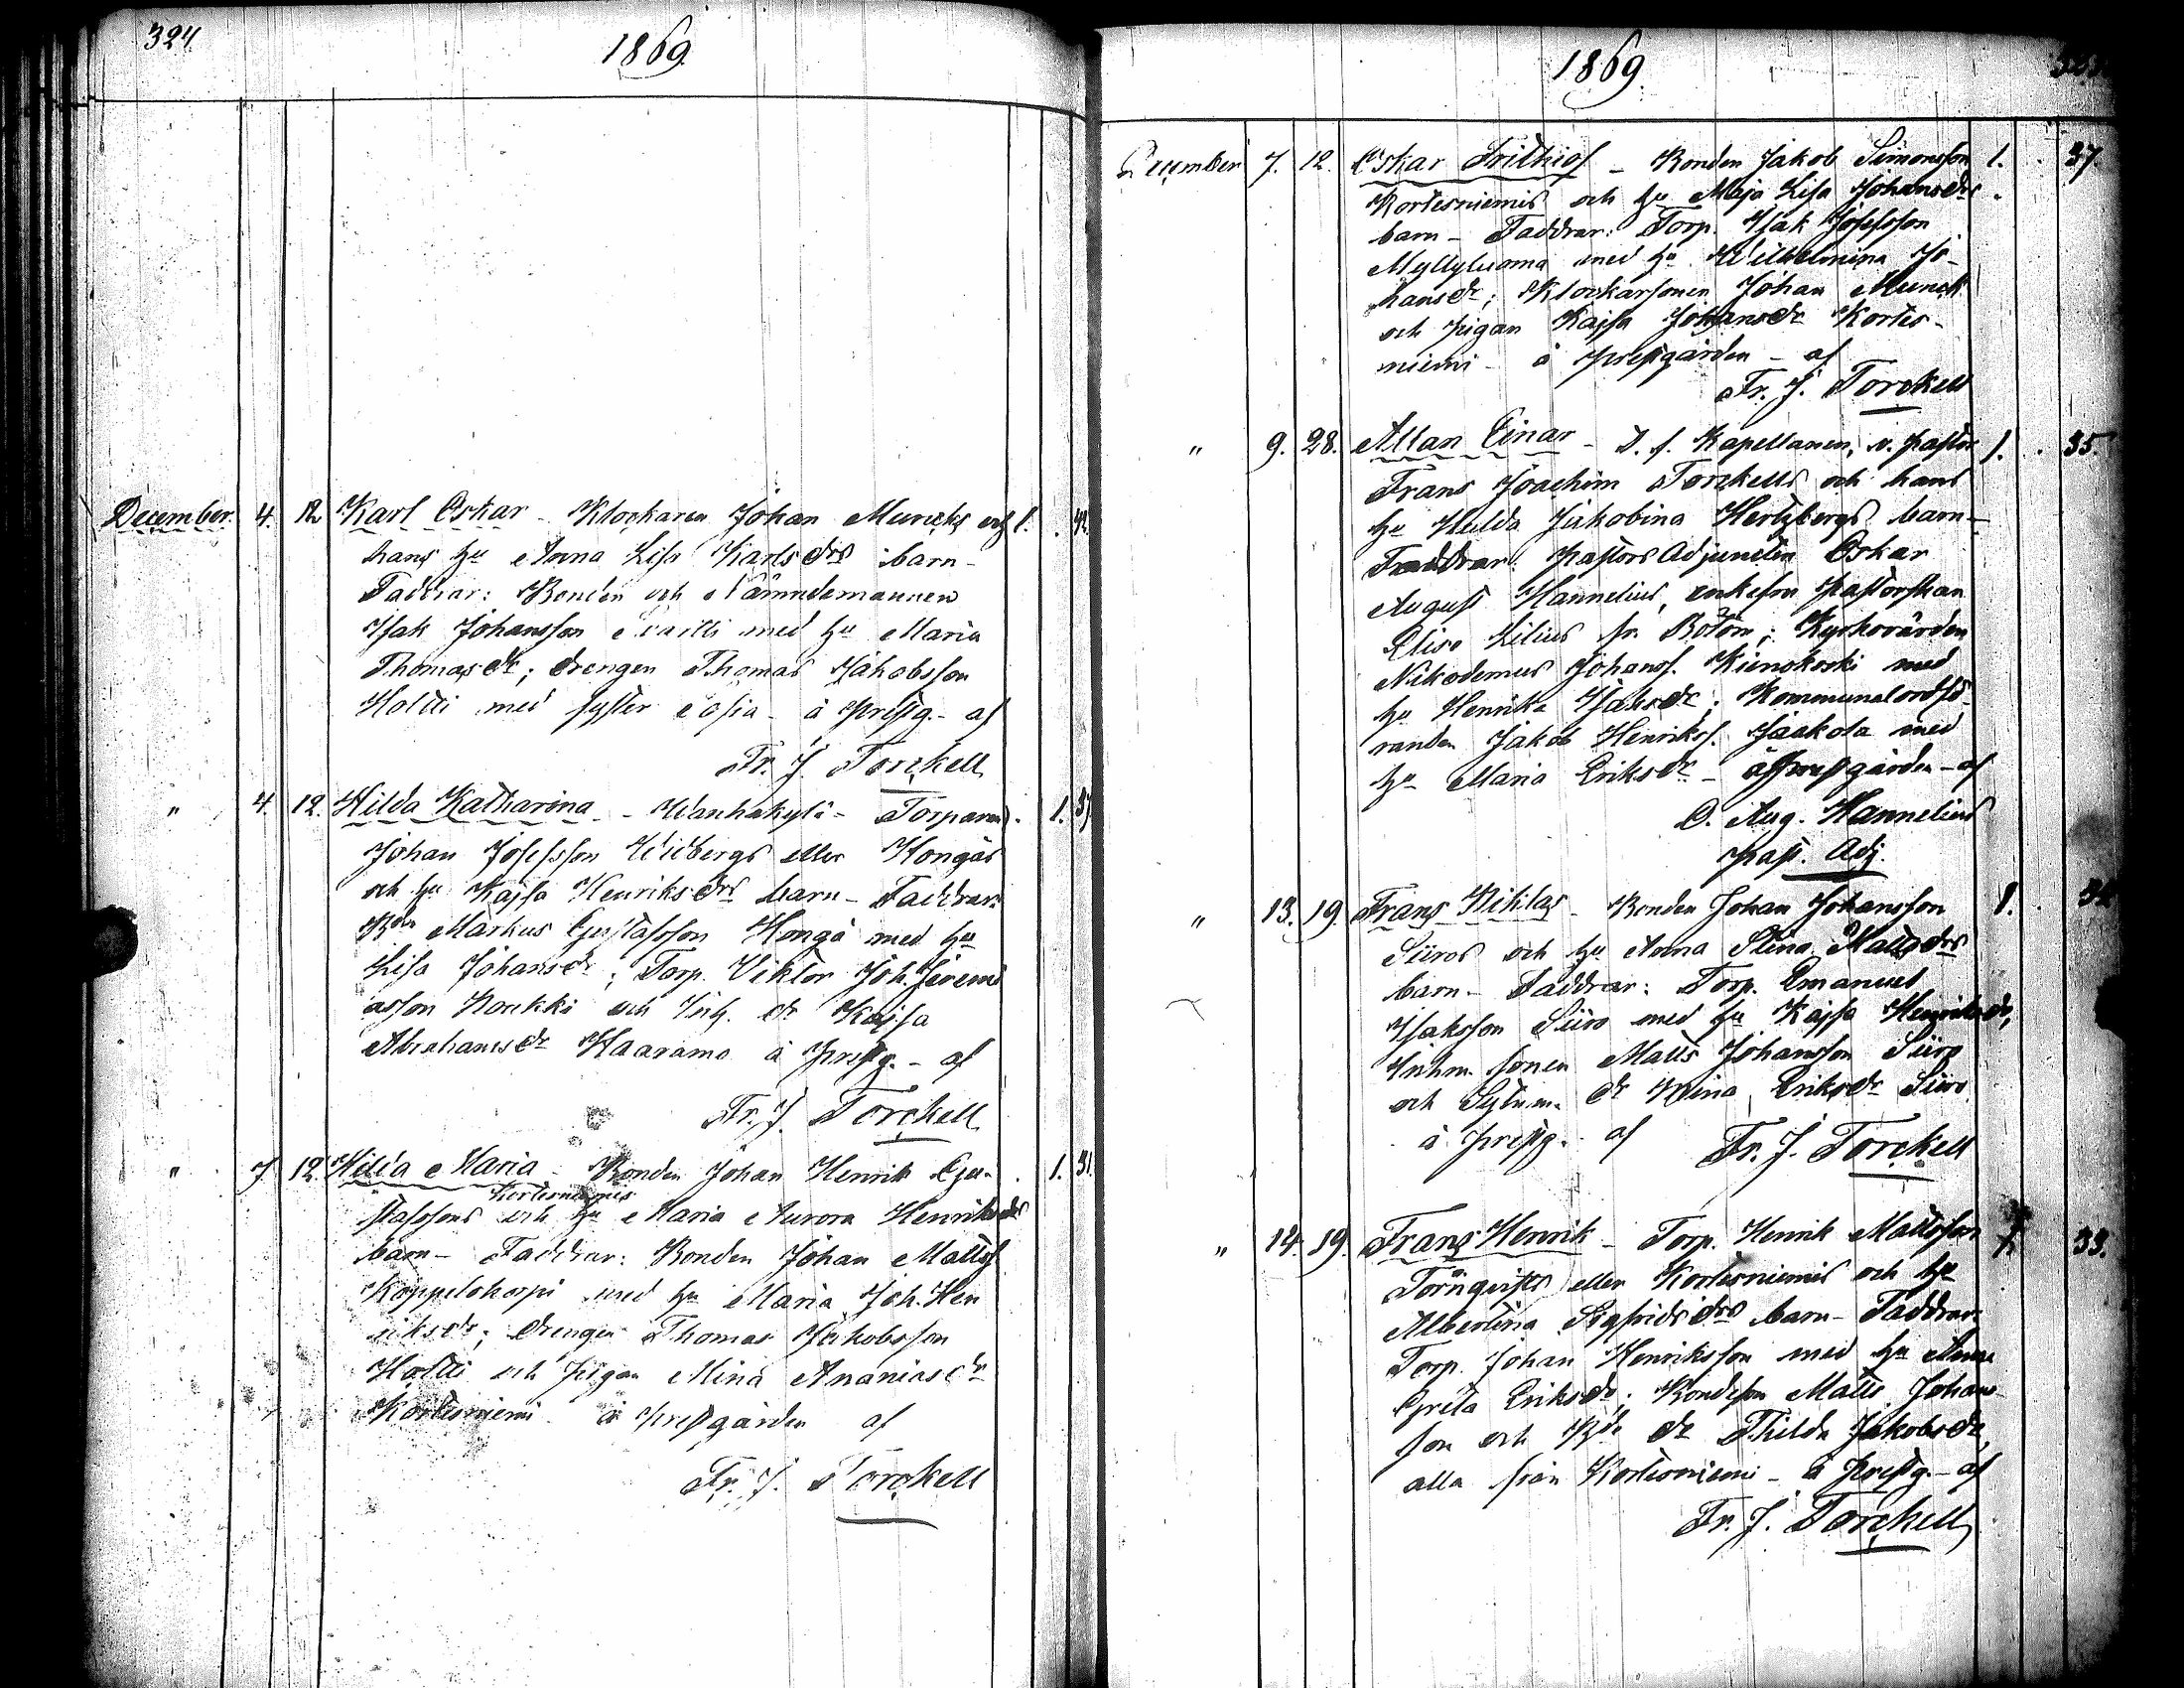 324
1869
December. 4. 12 Karl Oskar - Klockaren Johan Muncks och 1. 42.
hans hu Anna Lisa Karlsdrs barn -
Faddrar: Bonden och Nämndemannen
Isak Johansson med hu Maria
Thomasdr; drengen Thomas Jakobsson
Holtti med syster Sofia - å prestg. - af
Fr. J. Torckell
" 4. 12. Hilda Katharina - Wanhakylä - Torparen 1. 37
Johan Josefsson Widbergs eller Hongas
och hu Kajsa Henriksdrs barn - Faddrar:
Bdn Markus Gustafsson Honga med hu
Lisa Johansdr; Torp. Viktor Joh. Jeremi
asson Koukki och Inh. dr Kajsa
Abrahamsdr Haaramo å prestg. - af
Fr. J. Torckell
" 7. 12. Hilda Maria - Bonden Johan Henrik Gu- 1. 31.
Kortesniemis
stafssons och hu Maria Aurora Henriksdrs
barn - Faddrar: Bonden Johan Mattss.
Koppelokorpi med hu Maria Joh. Hen
riksdr; drengen Thomas Jakobsson
Holtti och pigan Mina Ananiasdr
Kortesniemi å prestgården af
Fr. J. Torckell
1869
December 7. 12. Oskar Frithiof - Bonden Jakob Simonsson 1. 37.
Kortesniemis och hu Maja Lisa Johansdrs
barn - Faddrar: Torp. Isak Josefsson
Myllyluoma med hu Wilhelmina Jo-
hansdr; Klockarsonen Johan Munck
och pigan Kajsa Johansdr Kortes-
niemi - å prestgården - af
Fr. J. Torckell
" 9. 28. Allan Einar - T. f. Kapellanen, v. pastor 1. 35.
Frans Joachim Torckells och hans
hu Hilda Jakobina Hertzbergs barn -
Faddrar: Pastors Adjunkten Oskar
August Hannelius, enkefru Pastorskan
Elise Lilius fr. Bötom; Kyrkovärden
Nikodemus Johanss. Kienokoski med
hu Henrika Isaksdr; Kommunalordfö-
randen Jakob Henrikss. Jaakola med
hu Maria Eriksdr - å prestgården - af
O. Aug. Hannelius
past. Adj.
" 13. 19. Frans Nikilas - Bonden Johan Johansson 1. 32
Siiros och hu Anna Stina Mattsdrs
barn - Faddrar: Torp. Emanuel
Isaksson Siiro med hu Kajsa Henriksdr;
Inhm. sonen Matts Johansson Siiro
och Sytnm. dr Wina Eriksdr Siiro
å prestg. af Fr. J. Torckell
" 14. 19. Frans Henrik - Torp. Henrik Mattsson 1. 33.
Törnqvists eller Kortesniemis och hu
Albertina Sigfridsdrs barn - Faddrar:
Torp. Johan Henriksson med hu Anna
Greta Eriksdr; Bondeson Matts Johans
son och Bde dr Thilda Jakobsdr,
alla från Kortesniemi - å prestg. - af
Fr. J. Torckell